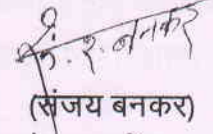 सं. २. बनकर
(संजय बनकर)